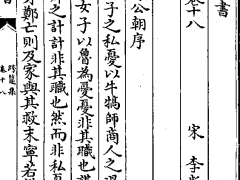 書
卷十八 宋 李
公朝序
子之私憂以牛犒師商人之過
女子以魯為憂憂非其職也
之計計非其職也然而非私
鄭亡則及家與其救末寧若
跨鼇集
卷十八